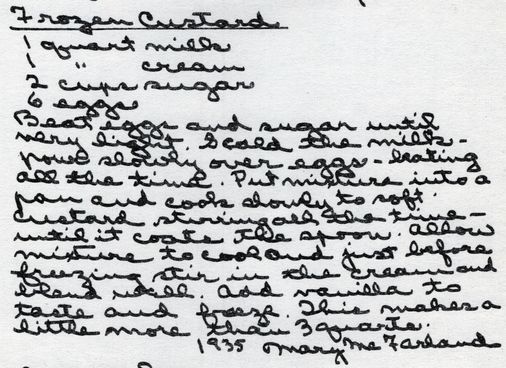 Frozen Custard
1 quart milk
1 " cream
2 cups sugar
6 eggs
Beat eggs and sugar until
very light. Scald the milk-
pour slowly over eggs - beating
all the time. Put mixture into a
pan and cook slowly to soft
custard stirring all the time-
until it coats the spoon. Allow
mixture to cool and just before
freezing stir in the cream and
blend well. Add vanilla to
taste and freeze. This makes a
little more than 3 quarts.
1935 Mary McFarland